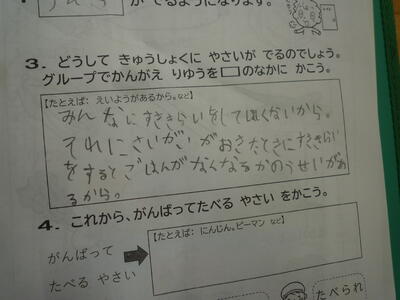 が でるようになります。
3. どうして きゅうしょくに やさいが でるのでしょう。
グループでかんがえ りゆうを□のなかに かこう。
【たとえば: えいようがあるから。など】
みんなにすききらいをしてほしくないから。
それにさいがいがおきたときにすききらい
をするとごはんがなくなるかのうせいがあ
るから。
4. これから、がんばってたべる やさい をかこう。
【たとえば: にんじん。ピーマン など】
がんばって
たべる やさい
たべられ